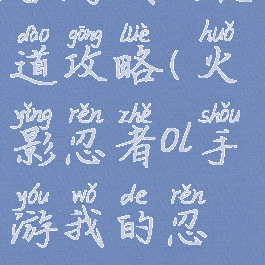 dào gōng lüè huǒ
道攻略(火
yǐng rěn zhě shǒu
影忍者ol手
yóu wǒ de rěn
游我的忍